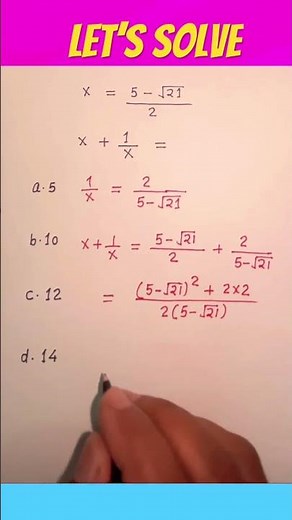 LET'S SOLVE
x = (5 - √21) / 2
x + 1/x =
a. 5
1/x = 2 / (5 - √21)
b. 10
x + 1/x = (5 - √21) / 2 + 2 / (5 - √21)
c. 12
= ((5 - √21)² + 2×2) / (2(5 - √21))
d. 14